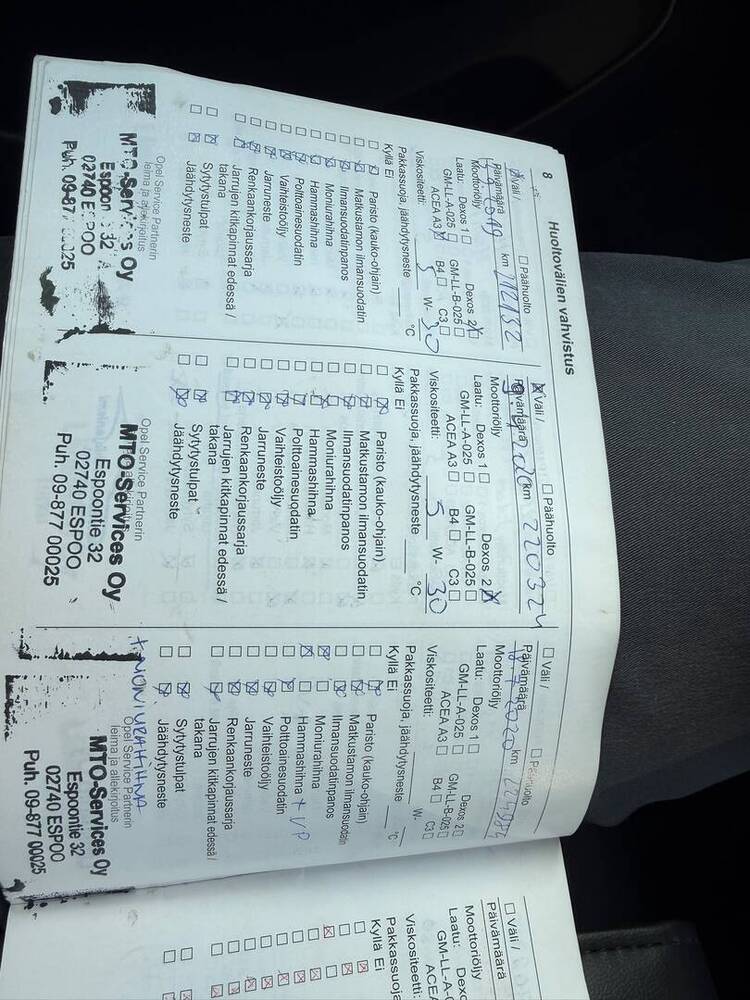 8 Huoltovälien vahvistus
Väli / Päähuolto
Päivämäärä km 212132
Moottoriöljy
Laatu: Dexos 1 Dexos 2
GM-LL-A-025 GM-LL-B-025
ACEA A3 B4 C3
Viskositeetti: 5 W- 30
Pakkassuoja, jäähdytysneste °C
Kyllä Ei
Paristo (kauko-ohjain)
Matkustamon ilmansuodatin
Ilmansuodatinpanos
Moniurahihna
Hammashihna
Polttoainesuodatin
Vaihteistoöljy
Jarruneste
Renkaankorjaussarja
Jarrujen kitkapinnat edessä /
takana
Sytytystulpat
Jäähdytysneste
Opel Service Partnerin
leima ja allekirjoitus
MTO-Services Oy
Espoon 32
02740 ESPOO
Puh. 09-877 00025
Väli / Päähuolto
Päivämäärä km 220324
Moottoriöljy
Laatu: Dexos 1 Dexos 2
GM-LL-A-025 GM-LL-B-025
ACEA A3 B4 C3
Viskositeetti: 5 W- 30
Pakkassuoja, jäähdytysneste °C
Kyllä Ei
Paristo (kauko-ohjain)
Matkustamon ilmansuodatin
Ilmansuodatinpanos
Moniurahihna
Hammashihna
Polttoainesuodatin
Vaihteistoöljy
Jarruneste
Renkaankorjaussarja
Jarrujen kitkapinnat edessä /
takana
Sytytystulpat
Jäähdytysneste
Opel Service Partnerin
MTO-Services Oy
Espoontie 32
02740 ESPOO
Puh. 09-877 00025
Väli / Päähuolto
Päivämäärä km
Moottoriöljy
Laatu: Dexos 1 Dexos 2
GM-LL-A-025 GM-LL-B-025
ACEA A3 B4 C3
Viskositeetti: W-
Pakkassuoja, jäähdytysneste °C
Kyllä Ei
Paristo (kauko-ohjain)
Matkustamon ilmansuodatin
Ilmansuodatinpanos
Moniurahihna
Hammashihna + VP
Polttoainesuodatin
Vaihteistoöljy
Jarruneste
Renkaankorjaussarja
Jarrujen kitkapinnat edessä /
takana
Sytytystulpat
Jäähdytysneste
+ MONIURAHIHNA
Opel Service Partnerin
leima ja allekirjoitus
MTO-Services Oy
Espoontie 32
02740 ESPOO
Puh. 09-877 00025
Väli /
Päivämäärä
Moottoriöljy
Laatu: Dexo
GM-LL-A-0
ACEA
Viskositeetti:
Pakkassuoja, jäähd
Kyllä Ei